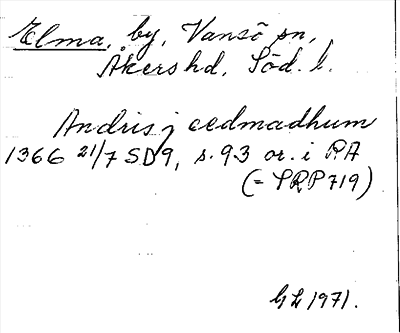 Elma, by, Vansö sn,
Åkers hd, Söd. l.
Andris j eedmadhum
1366 21/7 SD9, s. 93 or. i RA
(= SRP 719)
GL 1971.